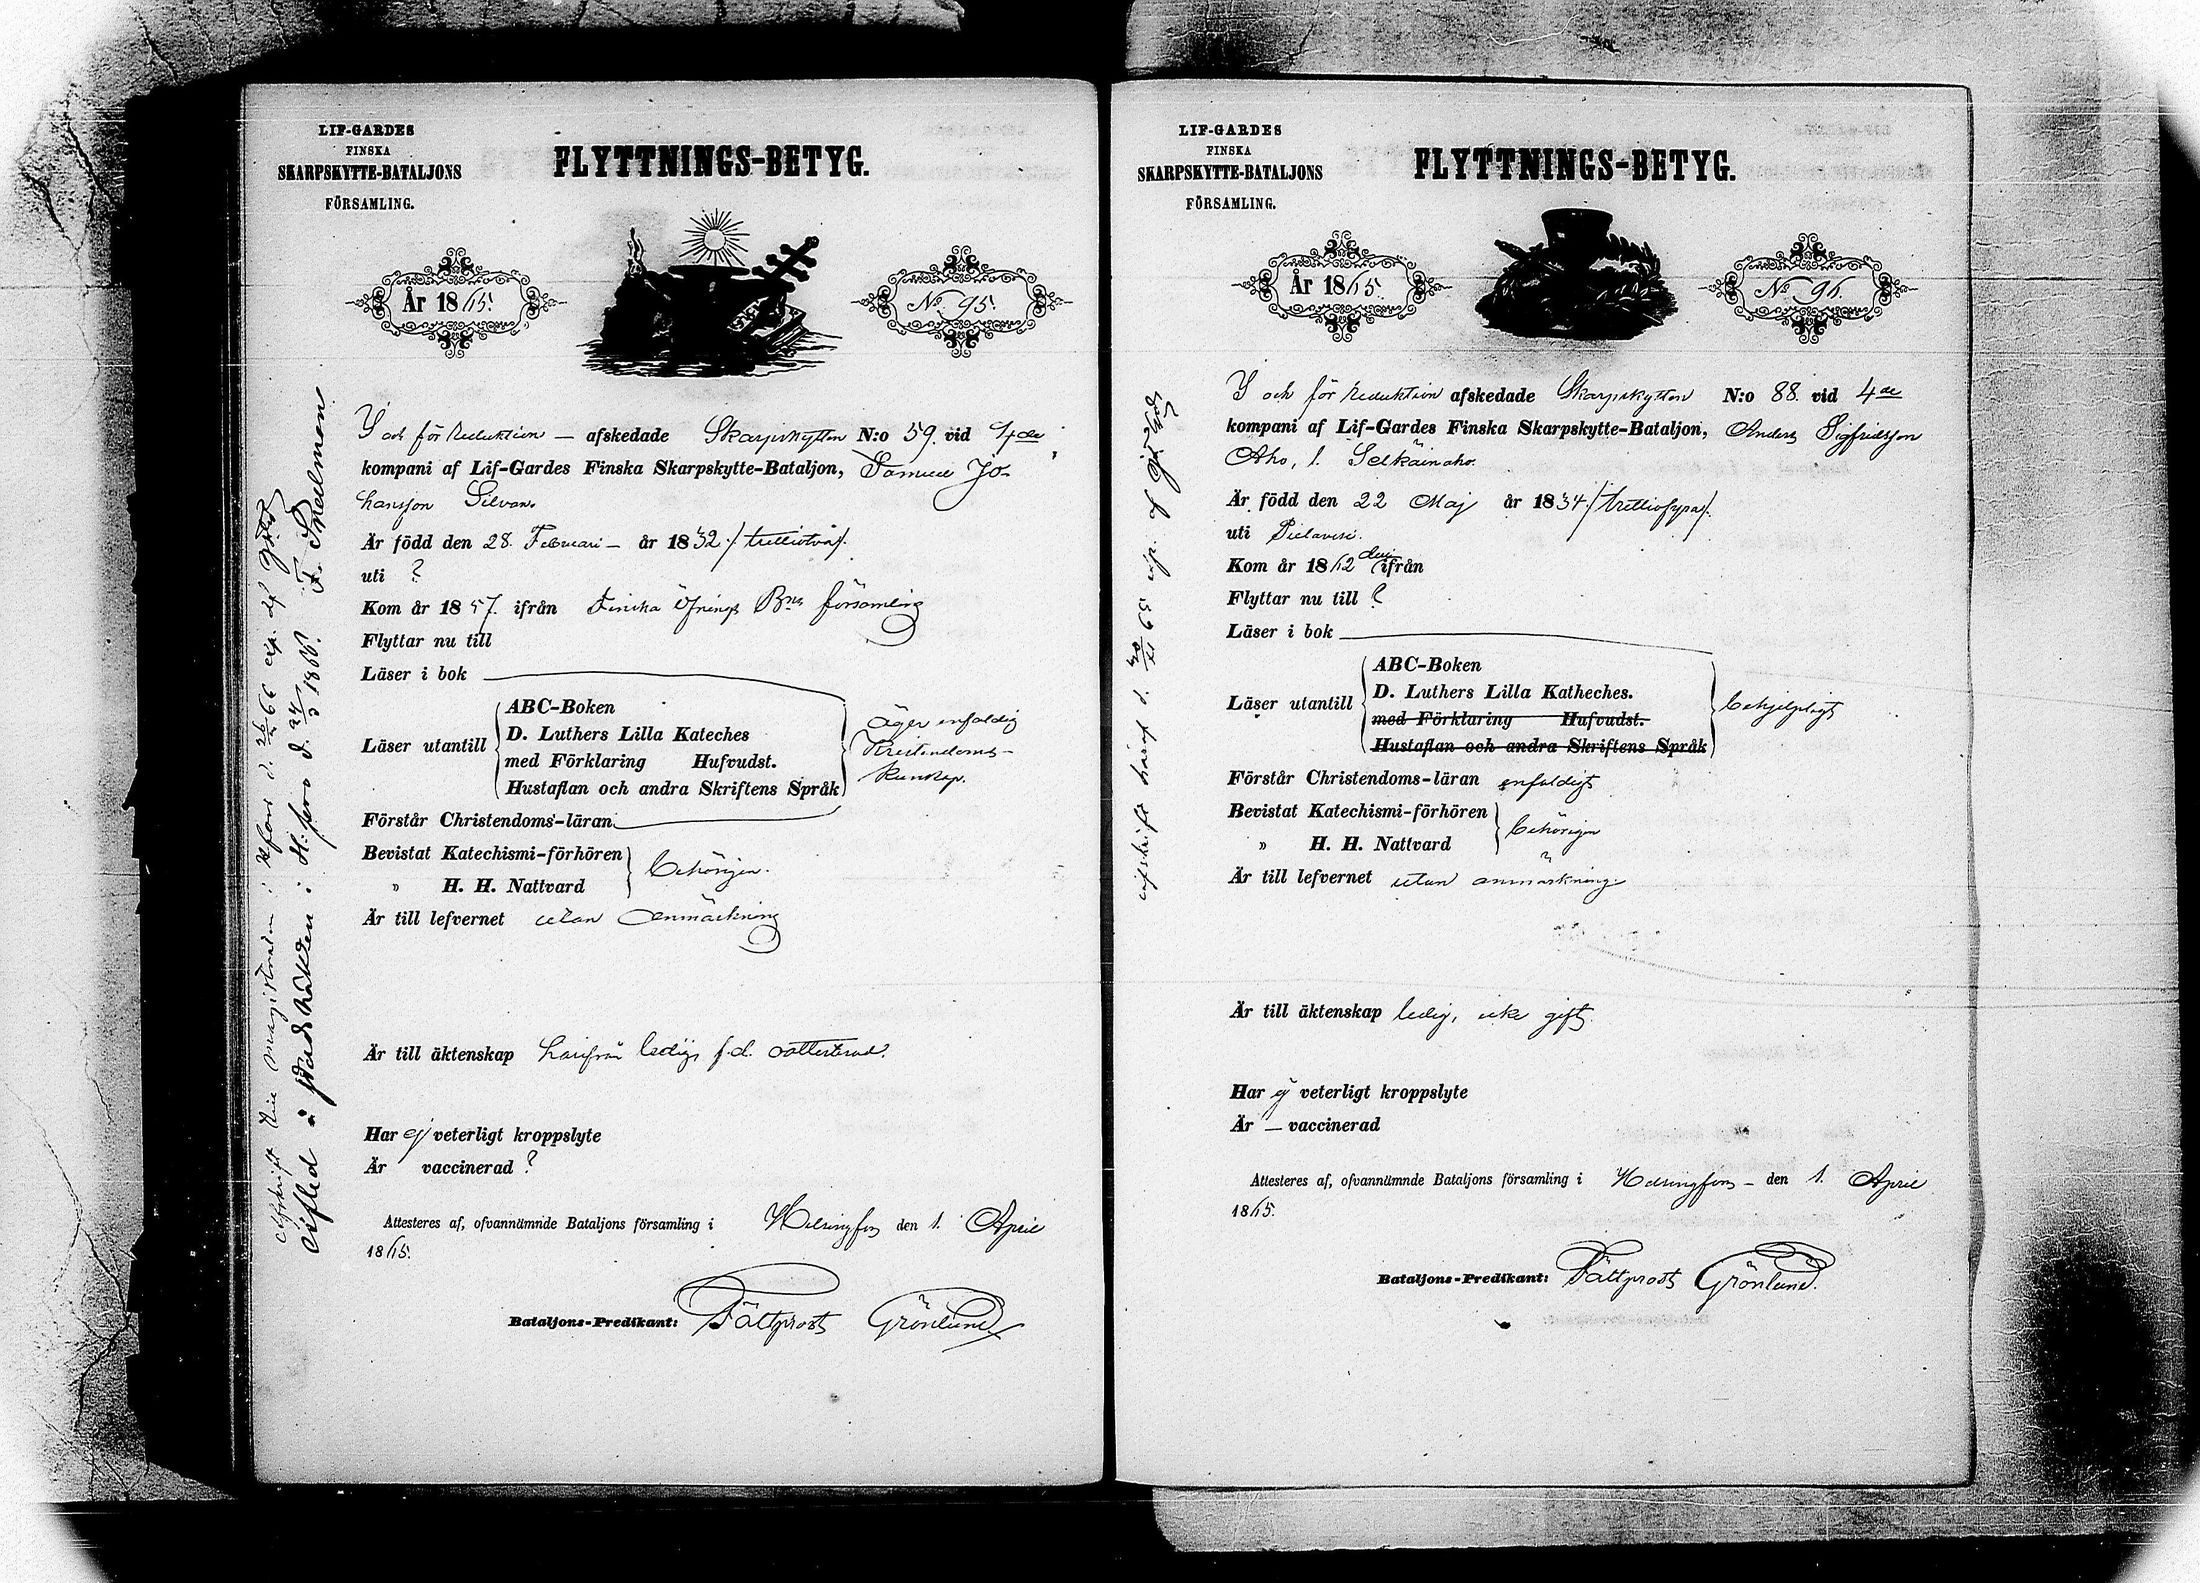 LIF-GARDES
FINSKA
SKARPSKYTTE-BATALJONS
FÖRSAMLING.
FLYTTNINGS-BETYG.
År 1865.
No 95.
I och för Reduktion — afskedade Skarpskytten N:o 59. vid 4de
kompani af Lif-Gardes Finska Skarpskytte-Bataljon, Samuel Jo-
hansson Silvan.
Är född den 28. Februari — år 1832 /trettiotvå/.
uti ?
Kom år 1857. ifrån Finska Öfnings Bns församling
Flyttar nu till
Läser i bok
Läser utantill
ABC-Boken
D. Luthers Lilla Kateches
med Förklaring Hufvudst.
Hustaflan och andra Skriftens Språk
Äger enfaldig
Kristendoms-
kunskap.
Förstår Christendoms-läran
Bevistat Katechismi-förhören
" H. H. Nattvard
behörigen.
Är till lefvernet utan anmärkning
Är till äktenskap härifrån ledig, f.d. attesterad.
Har ej veterligt kroppslyte
Är vaccinerad ?
Attesteres af, ofvannämnde Bataljons församling i Helsingfors den 1. April
1865.
Bataljons-Predikant: Fältprost Grönlund
Afskrift till magistraten i Hfors d. 26/2 66 exp. af
Aflled i stadshäktet i H:fors d. 24/3 1866. F. Snellman
LIF-GARDES
FINSKA
SKARPSKYTTE-BATALJONS
FÖRSAMLING.
FLYTTNINGS-BETYG.
År 1865.
No 96.
I och för Reduktion afskedade Skarpskytten N:o 88. vid 4de
kompani af Lif-Gardes Finska Skarpskytte-Bataljon, Anders Sigfridsson
Aho, l. Selkäinaho.
Är född den 22 Maj år 1834 /trettiofyra/.
uti Pielavesi.
Kom år 1862 ifrån
Flyttar nu till ?
Läser i bok
Läser utantill
ABC-Boken
D. Luthers Lilla Katheches.
med Förklaring Hufvudst.
Hustaflan och andra Skriftens Språk
behjelpligt
Förstår Christendoms-läran enfaldigt
Bevistat Katechismi-förhören
" H. H. Nattvard
behörigen
Är till lefvernet utan anmärkning.
Är till äktenskap ledig, icke gift.
Har ej veterligt kroppslyte
Är — vaccinerad
Attesteres af, ofvannämnde Bataljons församling i Helsingfors — den 1. April
1865.
Bataljons-Predikant: Fältprost Grönlund.
afskrift häraf d.